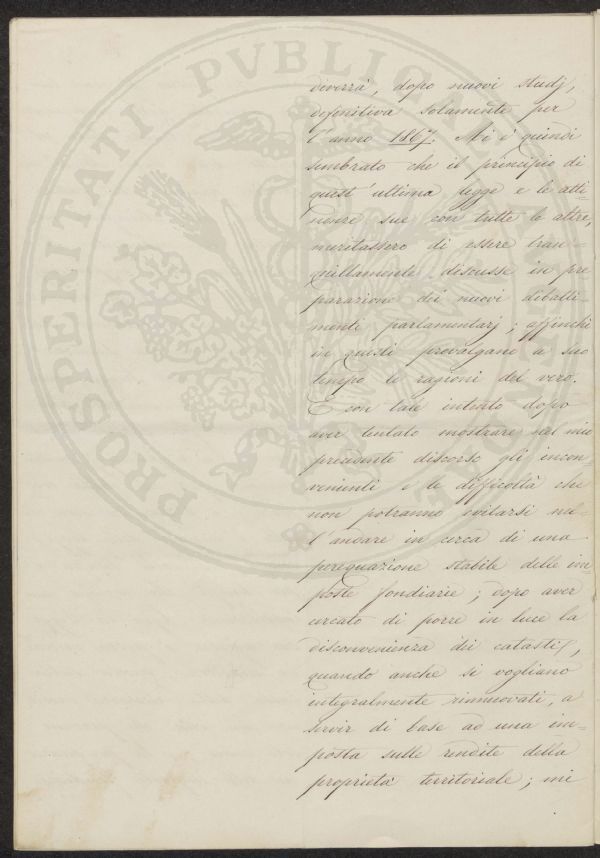 PROSPERITATI PVBLICAE
diverrà, dopo nuovi studj,
definitiva solamente per
l'anno 1867. Mi è quindi
sembrato che il principio di
quest'ultima legge e le atti=
nenze sue con tutte le altre,
meritassero di essere tran=
quillamente discusse in pre
parazione dei nuovi dibatti=
menti parlamentarj; affinchè
in questi prevalgano a suo
tempo le ragioni del vero.
E con tale intento dopo
aver tentato mostrare nel mio
precedente discorso gli incon=
venienti e le difficoltà che
non potranno evitarsi nel=
l'andare in cerca di una
perequazione stabile delle im
poste fondiarie; dopo aver
cercato di porre in luce la
disconvenienza dei catasti,
quando anche si vogliano
integralmente rinnuovati, a
servir di base ad una im=
posta sulle rendite della
proprietà territoriale; mi